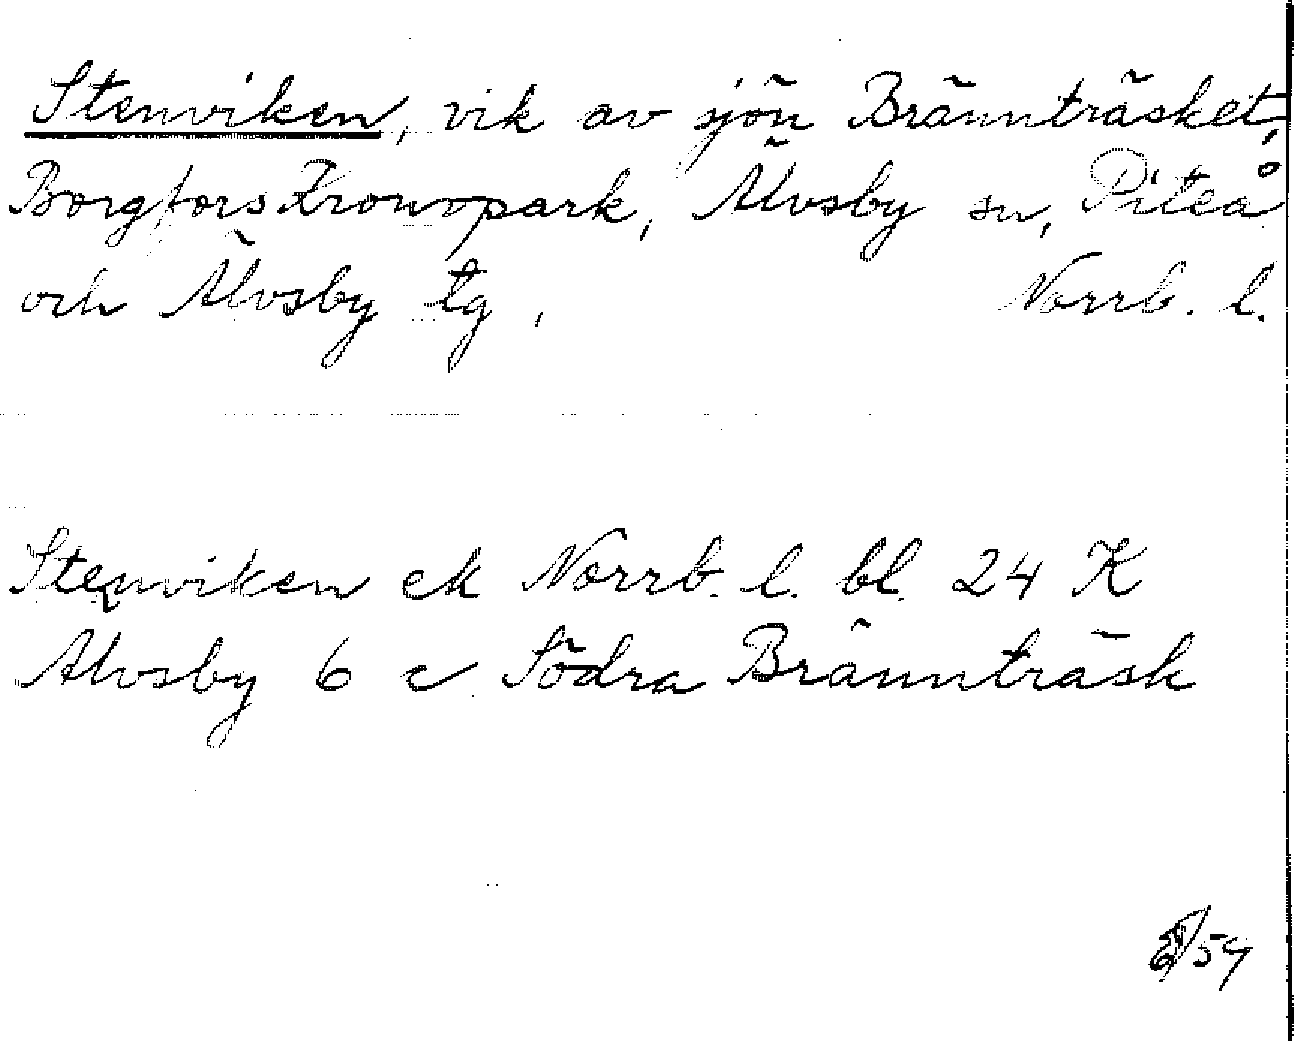 Stenviken, vik av sjön Brännträsket,
Borgfors Kronopark, Älvsby sn, Piteå
och Älvsby tg, Norrb. l.
Stenviken ek Norrb. l. bl. 24 K
Alvsby 6 c Södra Brännträsk